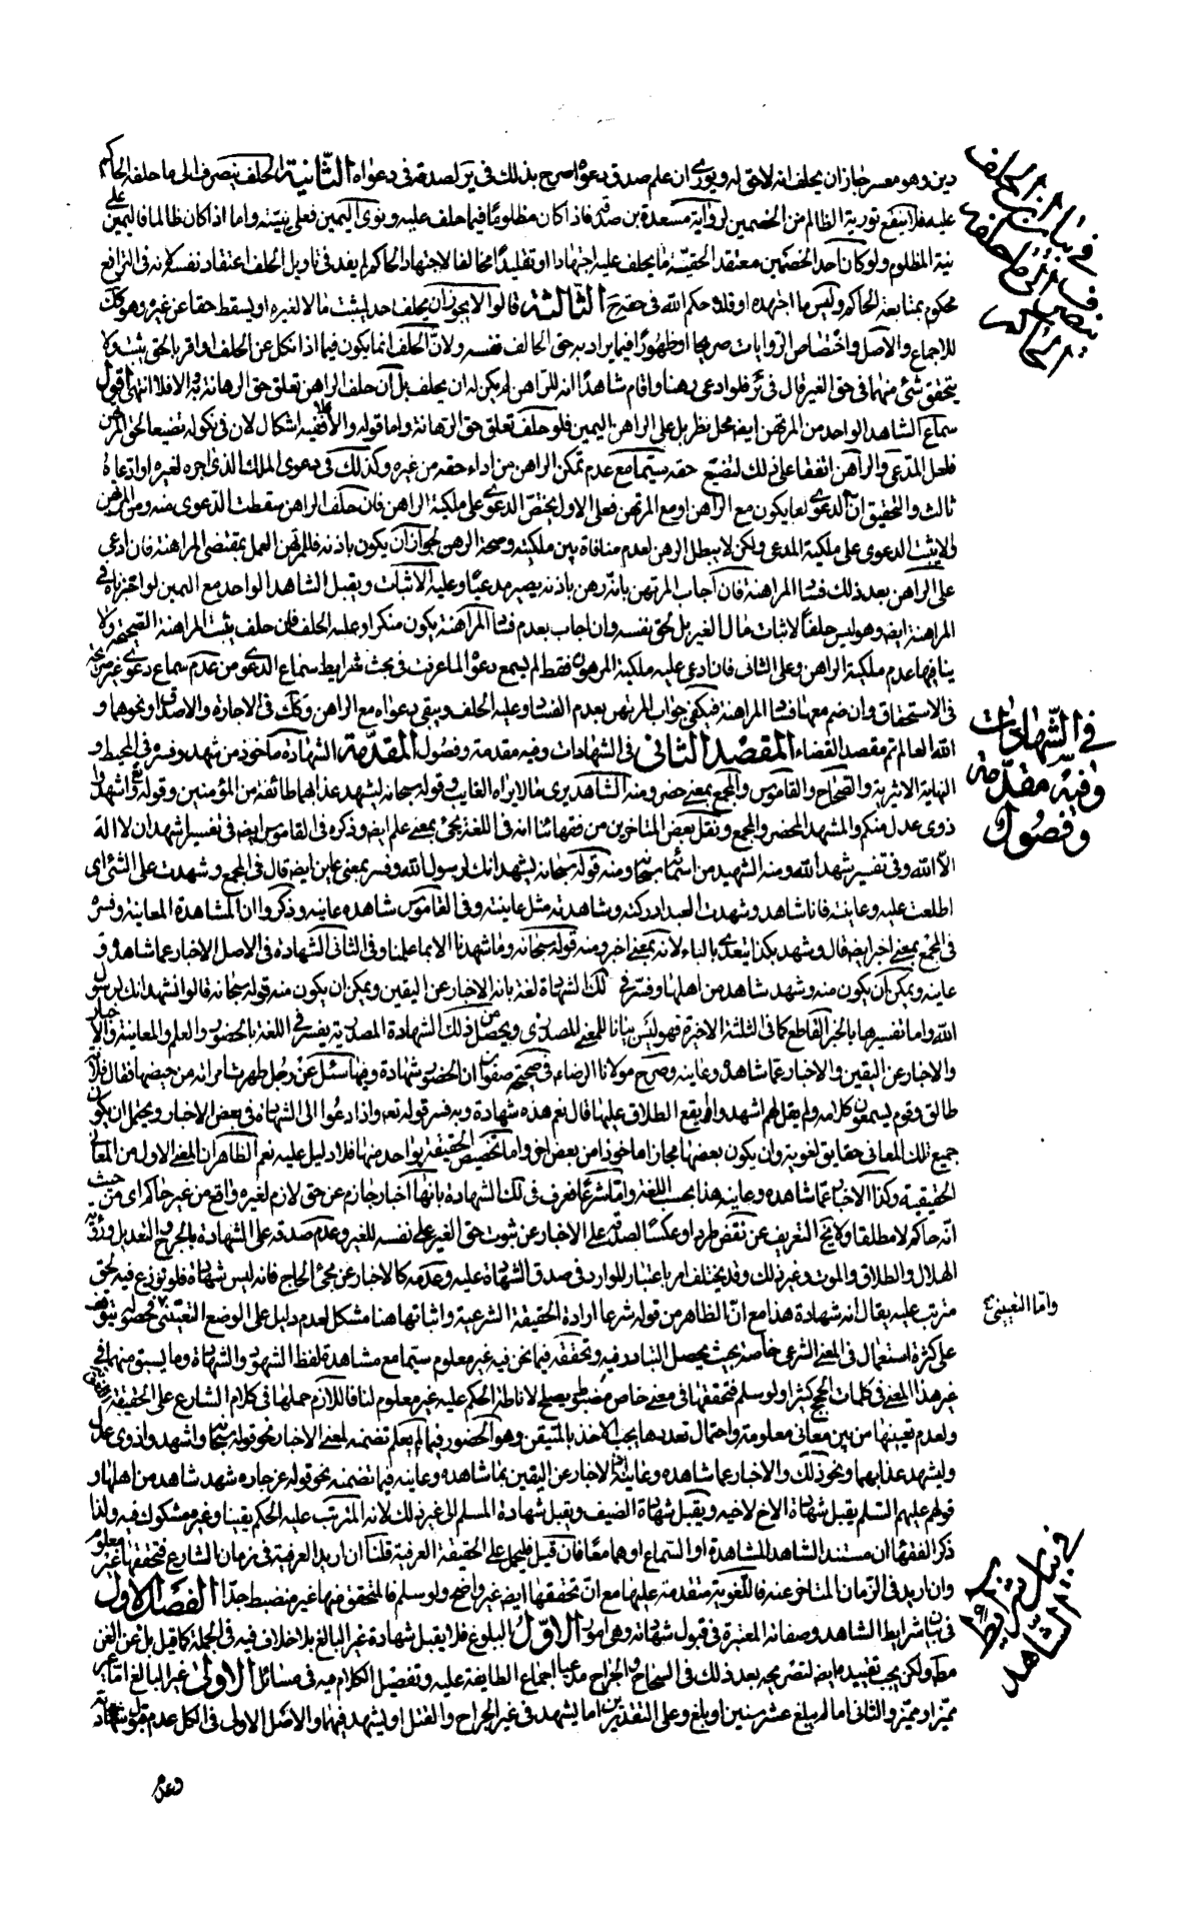 دين وهو معسر جاز ان يحلف انه لا حق له ويوري ان علم صدق دعواه اصرح بذلك في ير لصدقه في دعواه الثانية الحلف ينصرف الى ما حلفه الحاكم
عليه فلا ينفع تورية الظالم من الخصمين لرواية مسعدة بن صدقة فاذ اكان مظلوما فيما حلف عليه ونوى اليمين فعلى نيته واما اذا كان ظالما فاليمين على
نية المظلوم ولو كان احد الخصمين معتقد الحقية ما يحلف عليه اجتهادا او تقليدا مخالفا لاجتهاد الحاكم لم يفد في تاويل الحلف اعتقاد نفسه لكونه في الترافع
محكوم بمتابعة الحاكم وليس ما اجتهده او قلده حكم الله في حقه ح الثالثة قالوا لا يجوز ان يحلف احد ليثبت مالا لغيره او يسقط حقا عن غيره وهو كك
للاجماع والاصل واختصاص الروايات صريحا او ظهورا فيما يراد به حق الحالف نفسه ولان الحلف انما يكون فيما اذا نكل عن الحلف او اقر بالحق يثبت ولا
يتحقق شئ منهما في حق الغير قال في ير فلو ادعى رهنا واقام شاهدا انه للراهن لم يكن له ان يحلف بل ان حلف الراهن تعلق حق الرهانة به والا فلا انتهى اقول
سماع الشاهد الواحد من المرتهن ايضا محل نظر بل على الراهن اليمين فلو حلف تعلق حق الرهانة واما قوله والا فلا ففيه اشكال لان في نكوله تضييعا لحق المرتهن
فلعل المدعي والراهن اتفقا على ذلك لتضييع حقه سيما مع عدم تمكن الراهن من اداء حقه من غيره وكذلك في دعوى الملك الذي اجره لغيره او ادعاه
ثالث والتحقيق ان الدعوى اما يكون مع الراهن او مع المرتهن فعلى الاول يختص الدعوى على ملكية الراهن فان حلف الراهن سقطت الدعوى منه ومن المرتهن
والا يثبت الدعوى على ملكية المدعي ولكن لا يبطل الرهن لعدم منافاة بين ملكيته وصحة الرهن لجواز ان يكون باذنه فللمرتهن العمل بمقتضى المراهنة فان ادعى
على الراهن بعد ذلك فساد المراهنة فان اجاب المرتهن بانه رهن باذنه يصير مدعيا وعليه الاثبات ويقبل الشاهد الواحد مع اليمين
المراهنة ايضا وهو ليس حلفا لاثبات مال الغير بل لحق نفسه وان اجاب بعدم فساد المراهنة يكون منكرا وعليه الحلف فان حلف يثبت المراهنة الصحيحة ولا
ينافيها عدم ملكية الراهن وعلى الثاني فان ادعى عليه ملكية المرهون فقط لم يسمع دعواه لما عرفت في بحث شرايط سماع الدعوى من عدم سماع دعوى غير صريحة
في الاستحقاق وان ضم معها فساد المراهنة فيكفي جواب المرتهن بعدم الفساد وعليه الحلف ويبقى دعواه مع الراهن وكك في الاجارة والاصداق او نحوهما و
الله العالم تم مقصد القضاء المقصد الثاني في الشهادات وفيه مقدمة وفصول المقدمة الشهادة مأخوذ من شهد وفسره في المحيط و
النهاية الاثيرية والصحاح والقاموس والمجمع بمعنى حضر ومنه الشاهد يرى ما لا يراه الغايب وقوله سبحانه ليشهد عذابهما طائفة من المؤمنين وقوله تعالى واشهدوا
ذوى عدل منكم والمشهد المحضر والمجمع ونقل بعض المتاخرين من فقهائنا انه في اللغة يجئ بمعنى علم ايضا وذكره في القاموس ايضا في تفسير اشهد ان لا اله
الا الله وفي تفسير شهد الله ومنه الشهيد من اسمائه سبحانه ومنه قوله سبحانه نشهد انك لرسول الله وفسر بمعنى عاين ايضا قال في المجمع وشهدت على الشئ اى
اطلعت عليه وعاينته فانا شاهد وشهدت العيد ادركته وشاهدته مثل عاينته وفي القاموس شاهده عاينه وذكروا ان المشاهدة المعاينة وفسره
في المجمع بمعنى اخبر ايضا قال وشهد بكذا يتعدى بالباء لانه بمعنى اخبر ومنه قوله سبحانه وما شهدنا الا بما علمنا وفي الثاني الشهادة في الاصل الاخبار عما شاهده و
عاينه ويمكن ان يكون منه وشهد شاهد من اهلها وفسر في لك الشهادة لغة بانه الاخبار عن اليقين ويمكن ان يكون منه قوله سبحانه قالوا نشهد انك لرسول
الله واما تفسيرها بالخبر القاطع كما في الثلثة الاخيرة فهو ليس بيانا للمعنى المصدري ويحصل من ذلك الشهادة المصدرية يفسر في اللغة بالحضور والعلم والمعاينة والاخبار
والاخبار عن اليقين والاخبار عما شاهده وعاينه وصرح مولانا الرضا ع في صحيحة صفوان ان الحضور شهادة وفيها سئل عن رجل طهرت امراته من حيضها فقال فلانة
طالق وقوم يسمعون كلامه ولم يقل لهم اشهدوا ايقع الطلاق عليها قال نعم هذه شهادة وبه فسر قوله تعه واذا دعوا الى الشهادة في بعض الاخبار ويحتمل ان يكون
جميع تلك المعاني حقايق لغوية وان يكون بعضها مجازا ماخوذا من بعض اخر واما تخصيص الحقيقة بواحد منها فلا دليل عليه نعم الظاهر ان المعنى الاول من المعاني
الحقيقية وكذا الاخبار عما شاهده وعاينه هذا بحسب اللغة واما شرعا فعرف في لك الشهادة بانها اخبار جازم عن حق لازم لغيره واقع من غير حاكم اى من حيث
انه حاكم لا مطلقا ولا يخ التعريف عن نقض طردا وعكسا لصدقه على الاخبار عن ثبوت حق الغير على نفسه للغير وعدم صدقه على الشهادة بالجرح والتعديل ورؤية
الهلال والطلاق والموت وغير ذلك وقد يختلف امر باعتبار الموارد في صدق الشهادة عليه وعدمه كالاخبار عن مجئ الحاج فانه ليس شهادة فلو توزع فيه لحق
مترتب عليه يقال انه شهادة هذا مع ان الظاهر من قوله شرعا ارادة الحقيقة الشرعية واثباتها هنا مشكل لعدم دليل على الوضع التعيني فحصوله يتوقف
على كثرة استعمال في المعنى الشرعي خاصة بحيث يحصل التبادر فيه وتحققه فيما نحن فيه غير معلوم سيما مع مشاهدة لفظ الشهود والشهادة وما يسبق منهما في
غير هذا المعنى في كلمات الحجج كثيرا ولو سلم فتحققها في معنى خاص مضبوط يصلح لاناطة الحكم عليه غير معلوم لنا فاللازم حملها في كلام الشارع على الحقيقة اللغوية
ولعدم تعينها من بين معاني معلومة واحتمال تعددها يجب الاخذ بالمتيقن وهو الحضور فيما لم يعلم تضمنه لمعنى الاخبار نحو قوله سبحانه واشهدوا ذوى عدل
وليشهد عذابهما ونحو ذلك والاخبار عما شاهده وعاينه او الاخبار عن اليقين بما شاهده وعاينه فيما تضمنه نحو قوله عز جاره شهد شاهد من اهلها و
قولهم عليهم السلم يقبل شهادة الاخ لاخيه ويقبل شهادة الضيف ويقبل شهادة المسلم الى غير ذلك لانه المترتب عليه الحكم يقينا وغيره مشكوك فيه ولذا
ذكر الفقهاء ان مستند الشاهد المشاهدة او السماع او هما معا فان قيل فليحمل على الحقيقة العرفية قلنا ان اريد العرفية في زمان الشارع فتحققها غير معلوم
وان اريد في الزمان المتاخر عنه فاللغوية متقدمة عليها مع ان تحققها ايضا غير واضح ولو سلم فالمتحقق منها غير منضبط جدا الفصل الاول
في بيان شرايط الشاهد وصفاته المعتبرة في قبول شهادته وهي امور الاول البلوغ فلا يقبل شهادة غير البالغ بلا خلاف فيه في الجملة كما قيل بل عن الغنية
مطه ولكن يجب تقييده ايضا لتصريحه بعد ذلك في الشجاح والجراح مدعيا اجماع الطايفة عليه وتفصيل الكلام فيه في مسائل الاولى غير البالغ اما غير
مميز او مميز والثاني اما لم يبلغ عشر سنين او بلغ وعلى التقديرين اما يشهد في غير الجراح والقتل او يشهد فيهما والاصل الاولى في الكل عدم قبول شهادته
في بيان ان الحلف
ينصرف الى ما حلفه
الحاكم
في الشهادات
وفيه مقدمة
وفصول
واما التعييني
في بيان شرايط
الشاهد